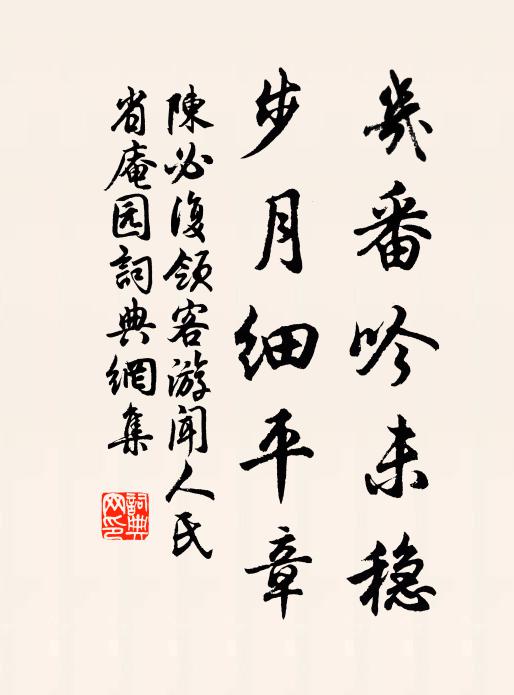 幾番吟未稳
步月细平章
陳必復領客游闻人氏
省庵园詞典網集
詞典网印